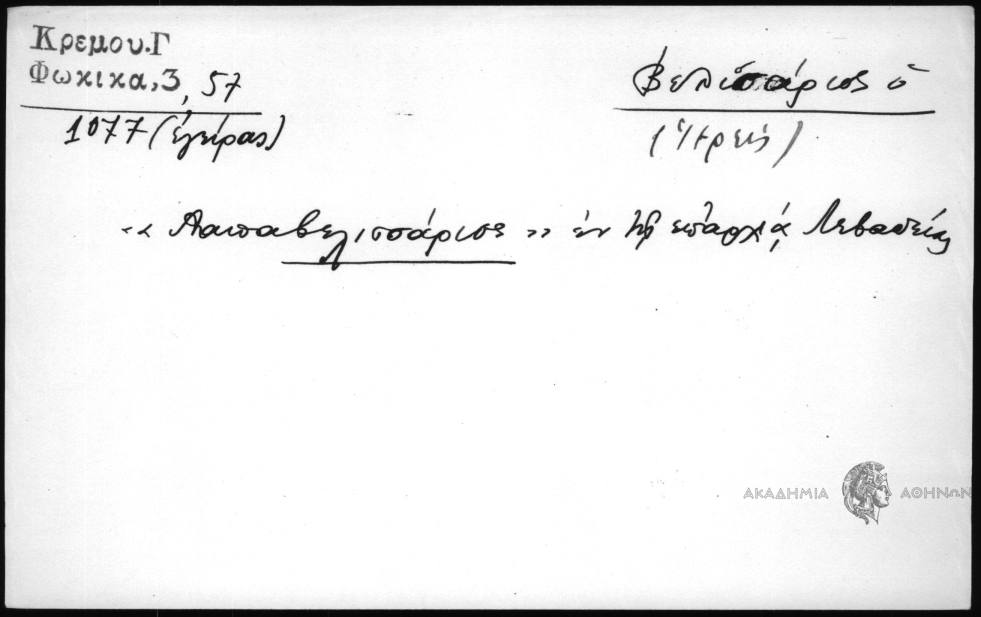 Κρεμου.Γ
Φωκικα,3, 57
1077 (ἐγείρας)
Βελισάριος ὁ
« Παπαβελισσάριος » ἐν τῇ ἐπαρχίᾳ Λεβαδείας
ΑΚΑΔΗΜΙΑ ΑΘΗΝΩΝ